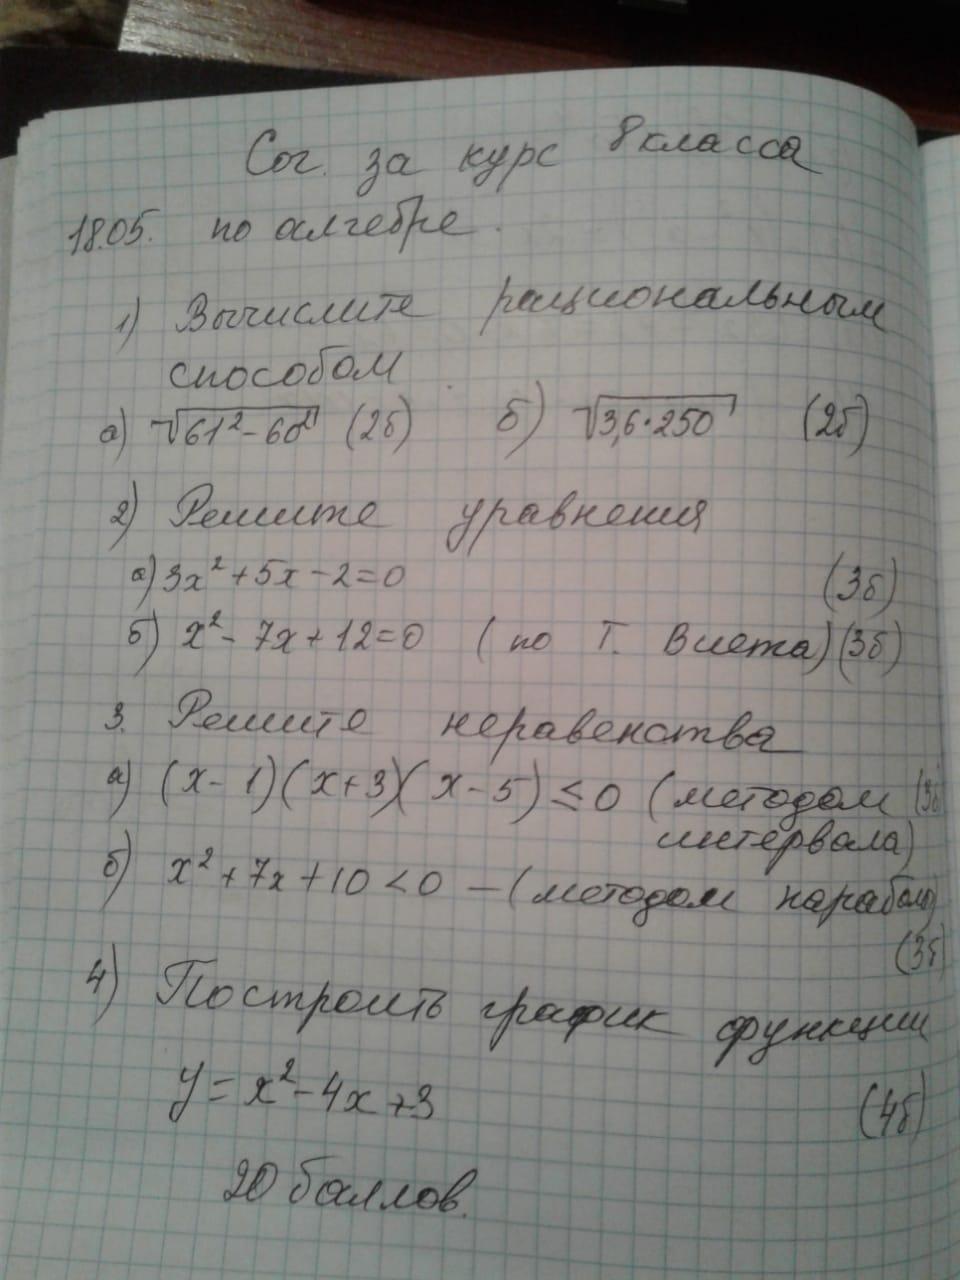 Соч. за курс 8 класса
18.05. по алгебре.
1) Вычислите рациональным
способом
а) √61²-60² (2б) б) √3,6·250 (2б)
2) Решите уравнения
а) 3x²+5x-2=0 (3б)
б) x²-7x+12=0 (по Т. Виета) (3б)
3. Решите неравенства
а) (x-1)(x+3)(x-5)≤0 (методом (3б
интервала)
б) x²+7x+10<0 - (методом парабол)
(3б)
4) Построить график функции
y=x²-4x+3 (4б)
20 баллов.